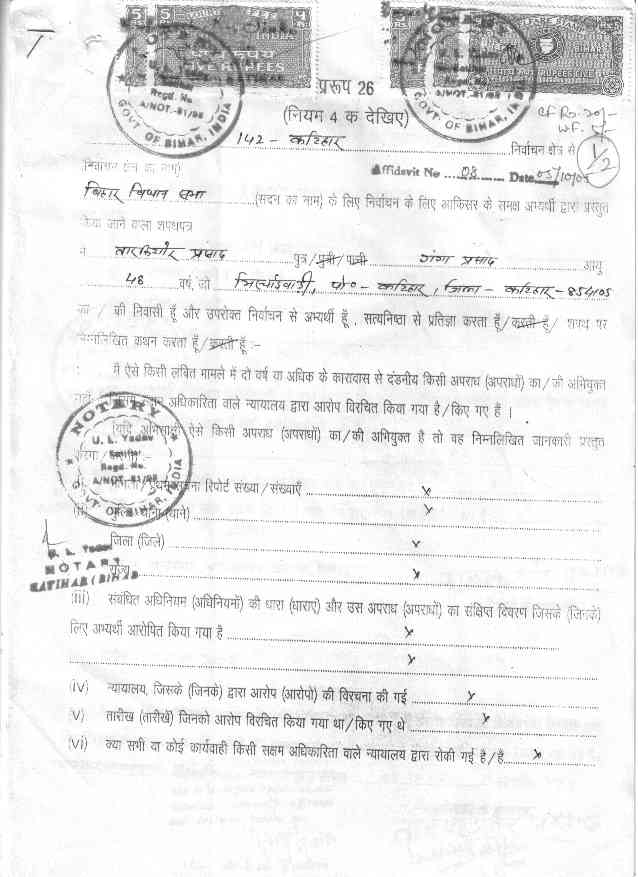 प्ररूप 26
(नियम 4 क देखिए)
CF Rs. 20/-
W.F. 5/-
142 - कटिहार निर्वाचन क्षेत्र से
1/2
(निर्वाचन क्षेत्र का नाम)
Affidavit No 08 Date 05/10/05
बिहार विधान सभा (सदन का नाम) के लिए निर्वाचन के लिए आफिसर के समक्ष अभ्यर्थी द्वारा प्रस्तुत
किया जाने वाला शपथपत्र
मैं तारकिशोर प्रसाद पुत्र/पुत्री/पत्नी गंगा प्रसाद आयु
48 वर्ष, जो पो० - कटिहार, जिला - कटिहार - 854105
का / की निवासी हूँ और उपरोक्त निर्वाचन से अभ्यर्थी हूँ, सत्यनिष्ठा से प्रतिज्ञा करता हूँ/करती हूँ/ शपथ पर
निम्नलिखित कथन करता हूँ/करती हूँ :-
मैं ऐसे किसी लंबित मामले में दो वर्ष या अधिक के कारावास से दंडनीय किसी अपराध (अपराधों) का/की अभियुक्त
अधिकारिता वाले न्यायालय द्वारा आरोप विरचित किया गया है/किए गए हैं ।
(यदि अभिसाक्षी ऐसे किसी अपराध (अपराधों) का/की अभियुक्त है तो वह निम्नलिखित जानकारी प्रस्तुत
NOTARY
U. L. Yadav
Katihar
Regd. No.
A/NOT.-81/98
GOVT. OF BIHAR, INDIA
सूचना रिपोर्ट संख्या/संख्याएँ x
(ii) (थाने) x
जिला (जिले) x
U. L. Yadav
NOTARY
KATIHAR (BIHAR
राज्य x
(iii) संबंधित अधिनियम (अधिनियमों) की धारा (धाराएं) और उस अपराध (अपराधों) का संक्षिप्त विवरण जिसके (जिनके)
लिए अभ्यर्थी आरोपित किया गया है x
x
(iv) न्यायालय, जिसके (जिनके) द्वारा आरोप (आरोपों) की विरचना की गई x
(v) तारीख (तारीखें) जिनको आरोप विरचित किया गया था/किए गए थे x
(vi) क्या सभी या कोई कार्यवाही किसी सक्षम अधिकारिता वाले न्यायालय द्वारा रोकी गई है/हैं x